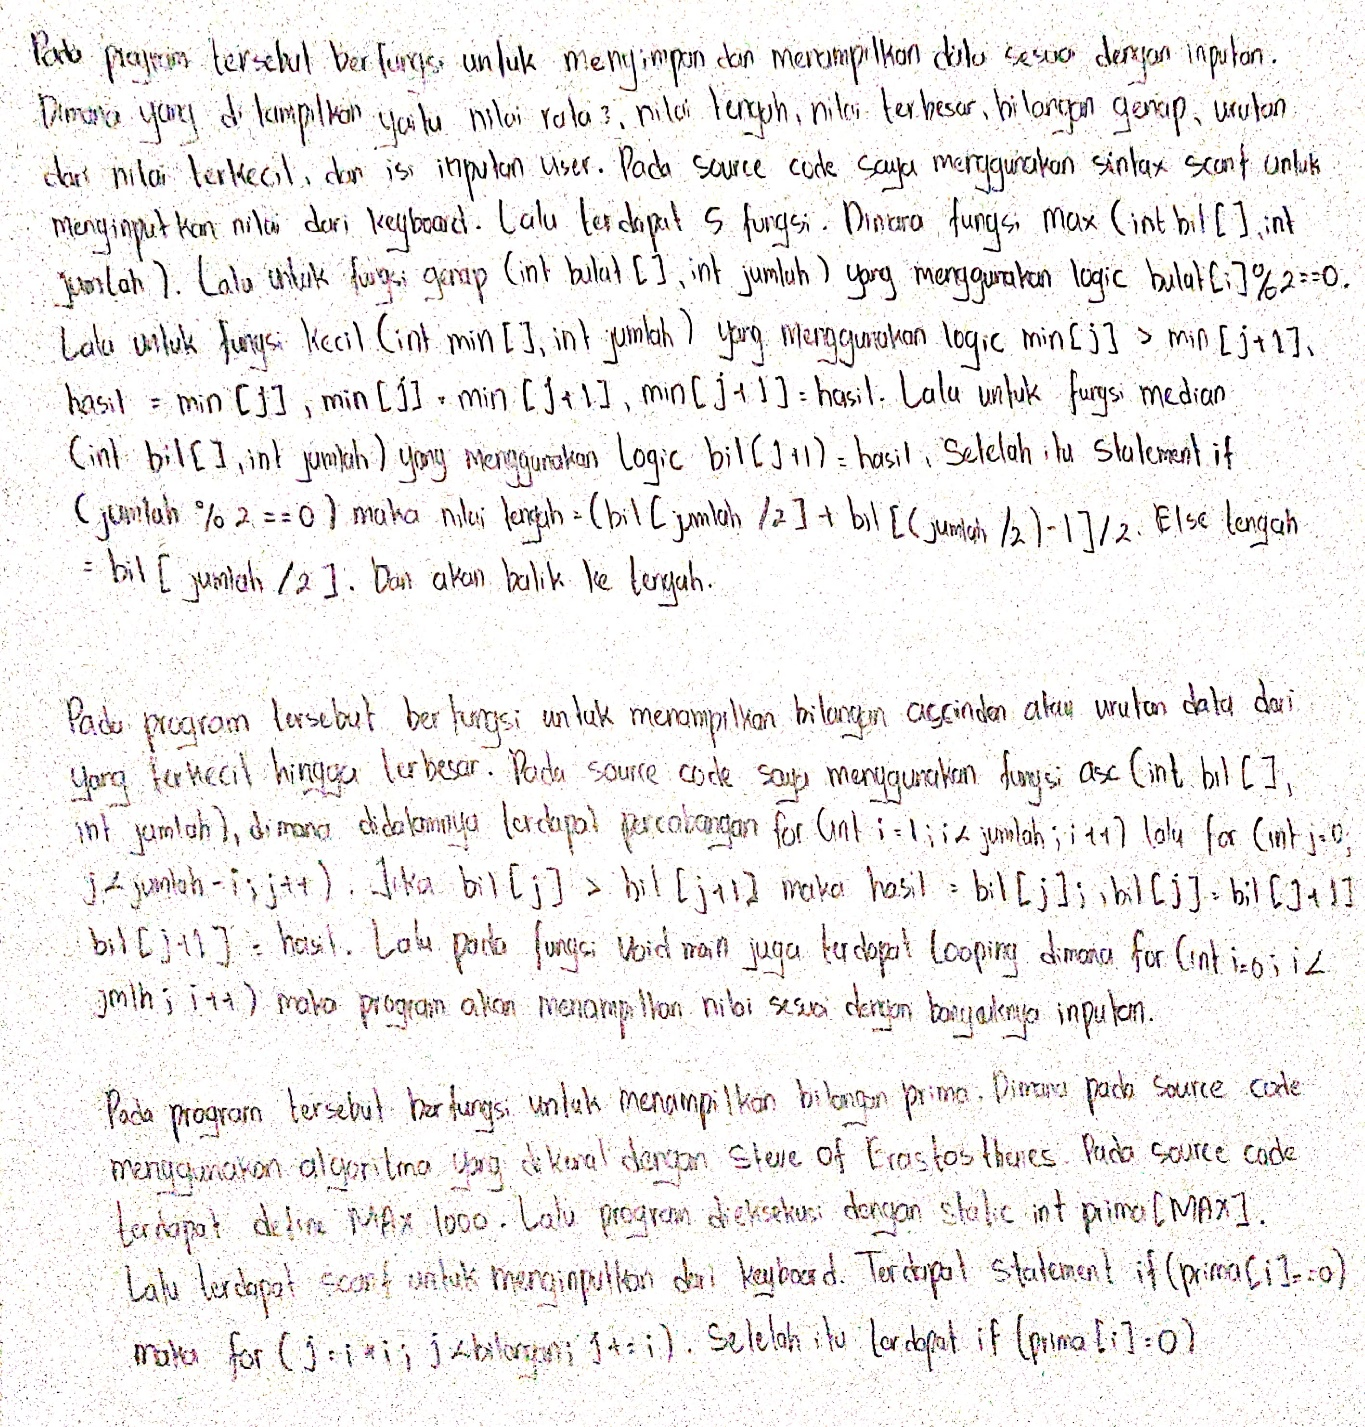 Pada program tersebut berfungsi untuk menyimpan dan menampilkan data sesuai dengan inputan.
Dimana yang di tampilkan yaitu nilai rata 2, nilai tengah, nilai terbesar, bilangan genap, urutan
dari nilai terkecil, dan isi inputan user. Pada source code saya menggunakan sintax scanf untuk
menginputkan nilai dari keyboard. Lalu terdapat 5 fungsi. Dimana fungsi max (int bil [ ], int
jumlah ). Lalu untuk fungsi genap (int bulat [ ], int jumlah ) yang menggunakan logic bulat[i]%2==0.
Lalu untuk fungsi kecil (int min [ ], int jumlah ) yang menggunakan logic min[j] > min [j+1],
hasil = min [j], min [j] = min [j+1], min[j+1] = hasil. Lalu untuk fungsi median
(int bil[ ], int jumlah) yang menggunakan logic bil(j+1) = hasil, Setelah itu statement if
(jumlah % 2 ==0) maka nilai tengah = (bil [jumlah /2] + bil [(jumlah /2)-1]/2. Else tengah
= bil [jumlah /2]. Dan akan balik ke tengah.
Pada program tersebut berfungsi untuk menampilkan bilangan asscinden atau urutan data dari
yang terkecil hingga terbesar. Pada source code saya menggunakan fungsi asc (int bil [ ],
int jumlah), dimana didalamnya terdapat percabangan for (int i=1; i< jumlah; i++) lalu for (int j=0;
j< jumlah-i; j++). Jika bil[j] > bil [j+1] maka hasil = bil[j]; , bil[j] = bil [j+1]
bil[j+1] = hasil. Lalu pada fungsi void main juga terdapat looping dimana for (int i=0; i<
jmlh; i++) maka program akan menampilkan nilai sesuai dengan banyaknya inputan.
Pada program tersebut berfungsi untuk menampilkan bilangan prima. Dimana pada source code
menggunakan algoritma yang dikenal dengan Sieve of Erastosthenes. Pada source code
terdapat define MAX 1000. Lalu program dieksekusi dengan static int prima[MAX].
Lalu terdapat scanf untuk menginputkan dari keyboard. Terdapat statement if (prima[i]==0)
maka for (j=i*i; j<bilangan; j+=i). Setelah itu terdapat if (prima[i]=0)